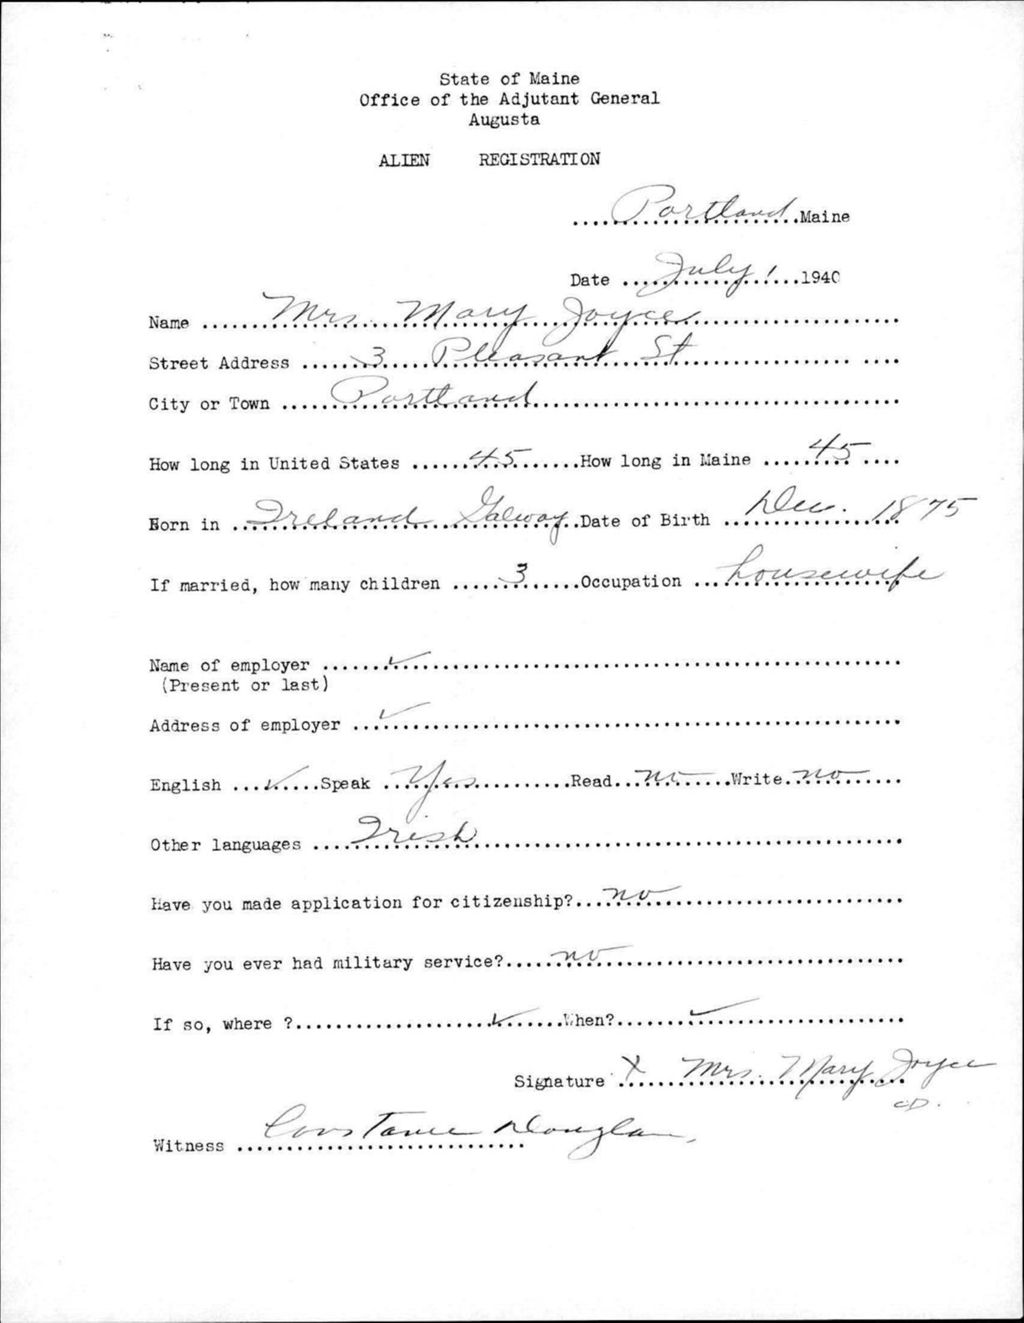 State of Maine
Office of the Adjutant General
Augusta
ALIEN REGISTRATION
....Portland....Maine
Date ....July 1....1940
Name ....Mrs. Mary Joyce....
Street Address ....3 Pleasant St....
City or Town ....Portland....
How long in United States ....45....How long in Maine ....45....
Born in ....Ireland Galway....Date of Birth ....Dec. 1875
If married, how many children ....3....Occupation ....housewife
Name of employer ....✓....
(Present or last)
Address of employer ....✓....
English ...✓....Speak ....Yes....Read...no....Write..no....
Other languages ....Irish....
Have you made application for citizenship?...no....
Have you ever had military service?....no....
If so, where ?....✓....When?....✓....
Signature X Mrs. Mary Joyce
CD.
Witness Constance Douglas